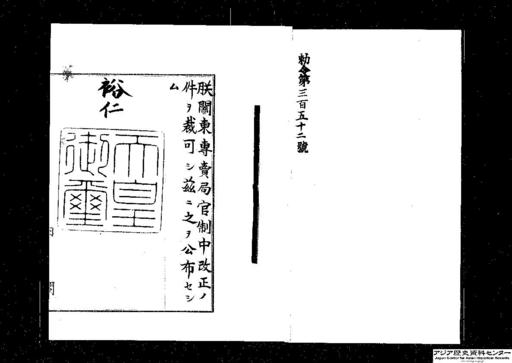 勅令第三百五十二號
朕關東專賣局官制中改正ノ
件ヲ裁可シ茲ニ之ヲ公布セシ
ム
裕仁
天皇
御璽
内閣
アジア歴史資料センター
Japan Center for Asian Historical Records